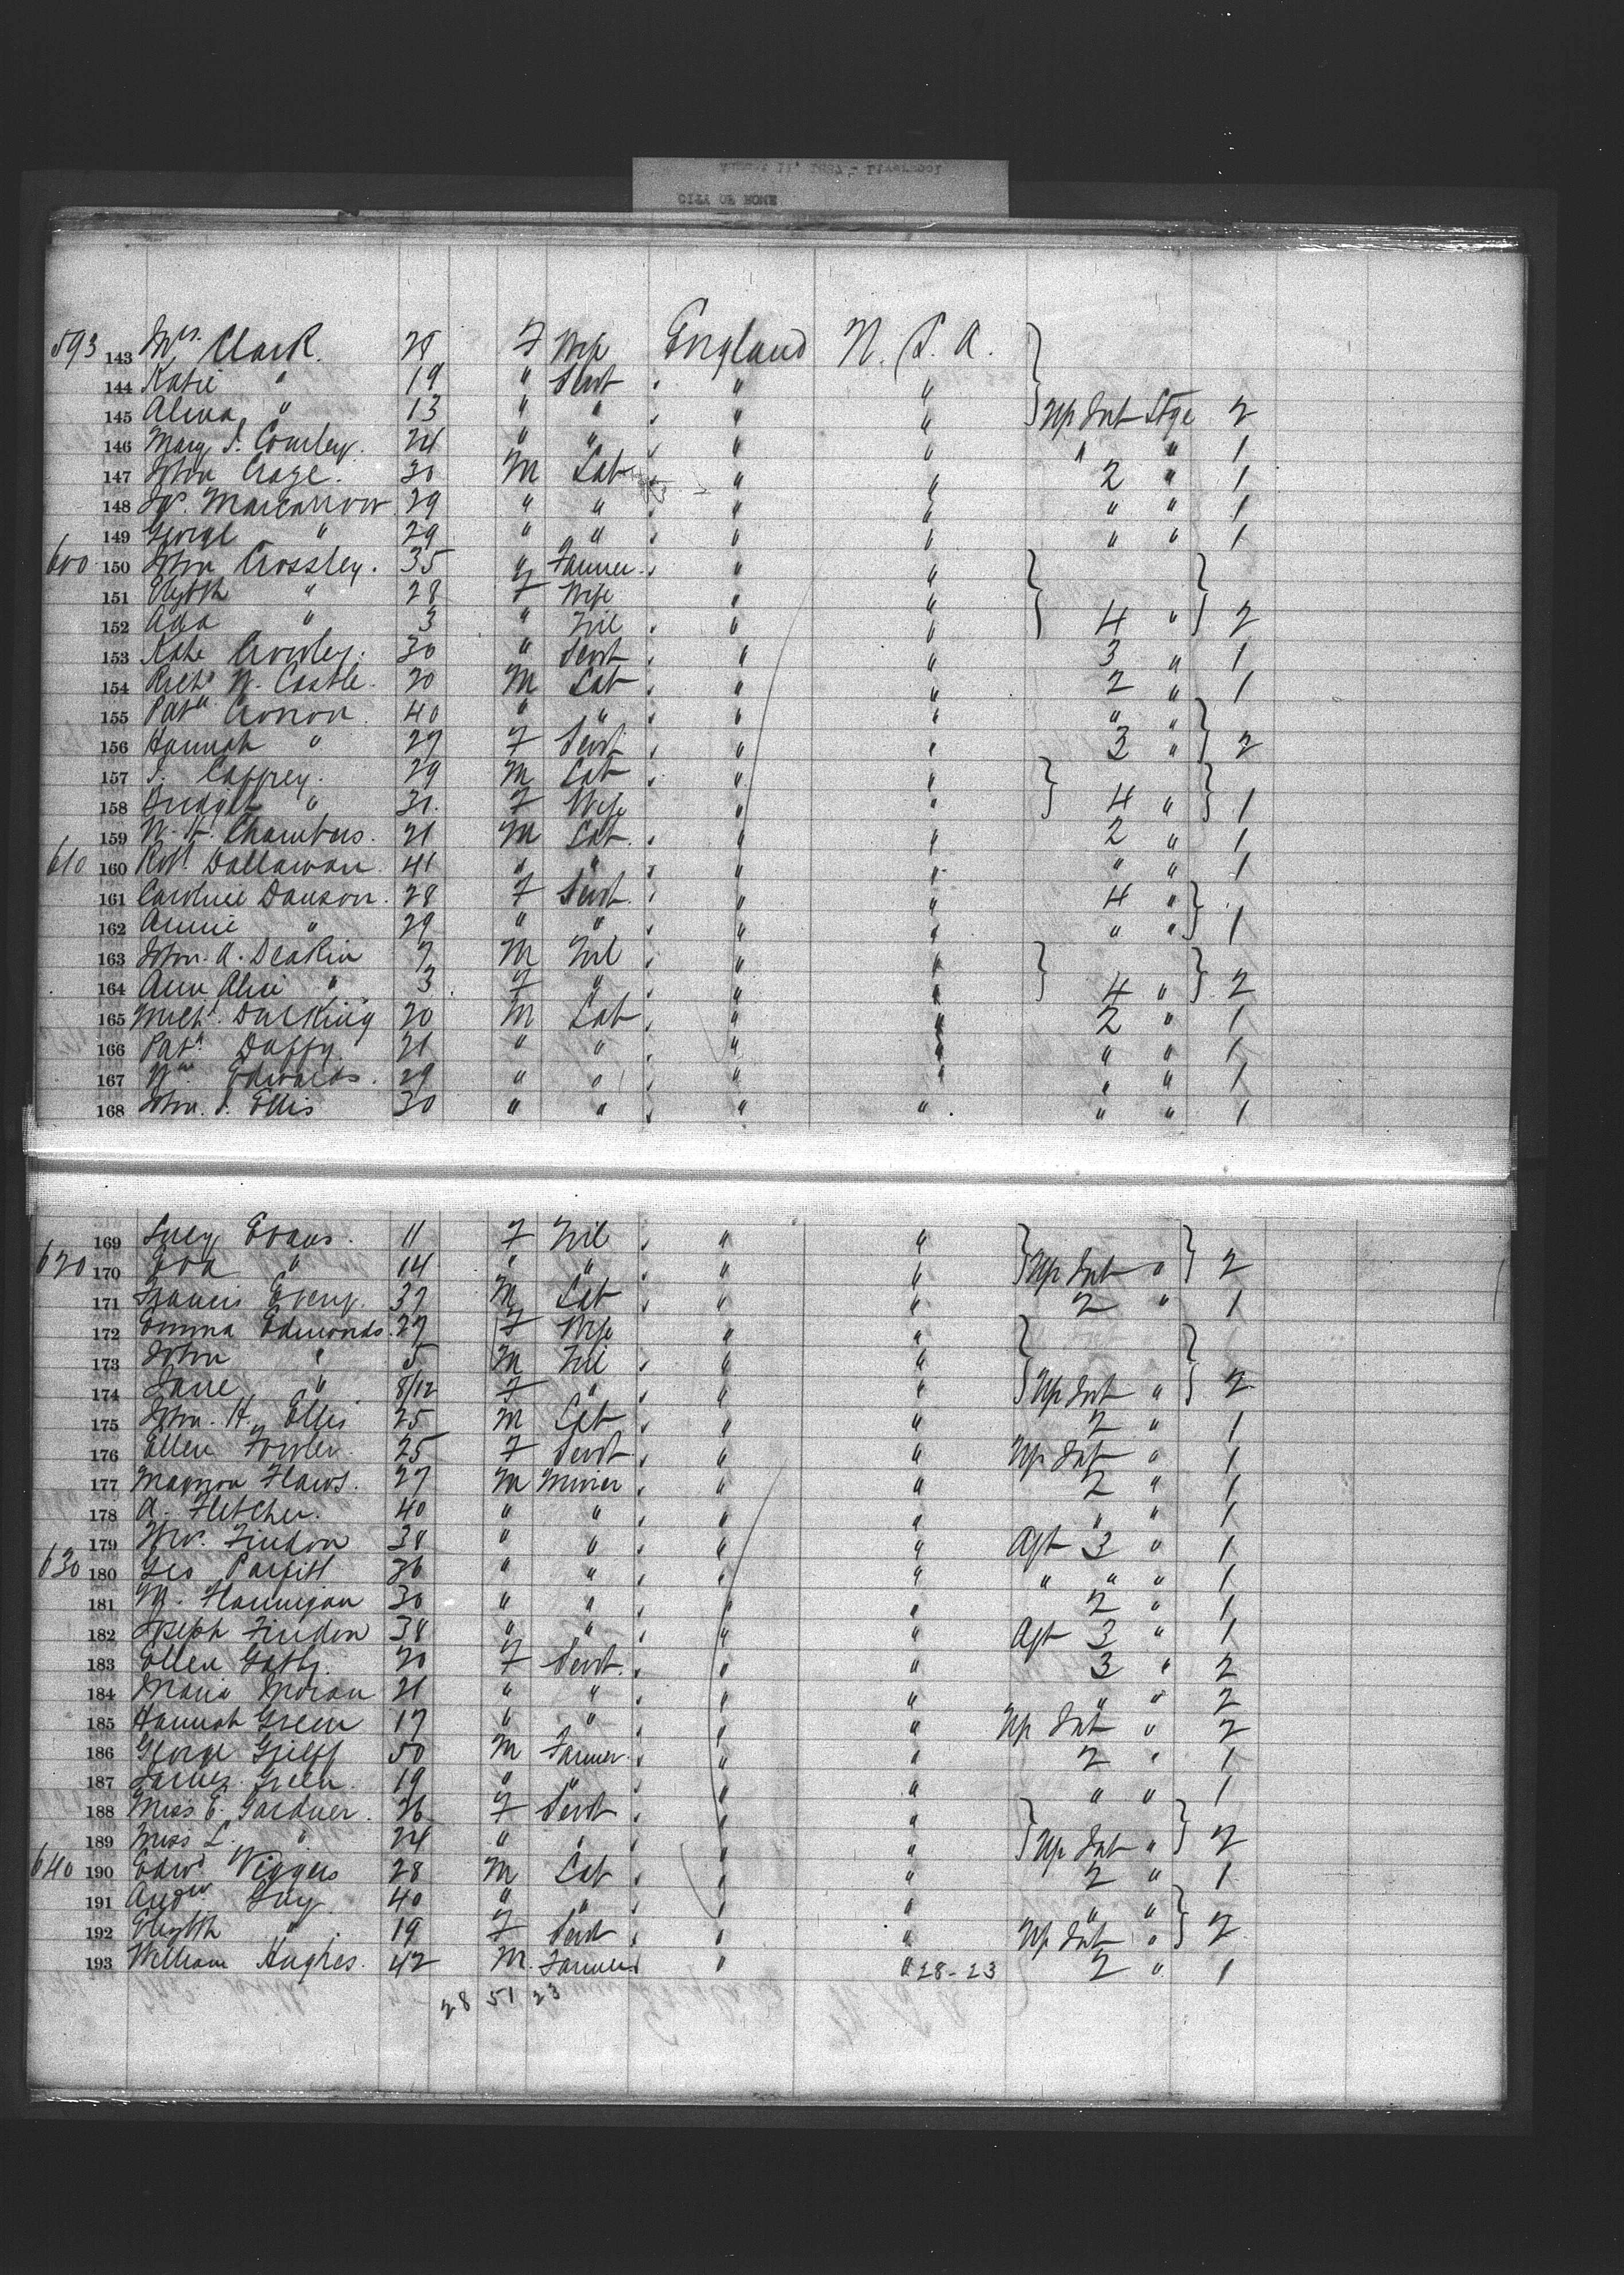 August 11, 1887 - Liverpool
CITY OF ROME
593 143 Mrs. Clark. 28 F Wife England U. S. A. }
144 Katie " 19 " Servt " "
145 Alma " 13 " " " " } Up Int Stge 2
146 Mary S. 24 " " " " " " 1
147 John 30 M Lab " " 2 " 1
148 29 " " " " " " 1
149 George " 29 " " " " " " 1
600 150 John Crossley. 35 " Farmer " " } }
151 Elizbth " 28 F Wife " "
152 Ada " 3 " " " } 4 " } 2
153 Kate Crowley. 30 " Servt " " 3 " 1
154 Richd W. Castle. 20 M Lab " " 2 " 1
155 Patk 40 " " " " " " }
156 Hannah " 27 F Servt " " 3 " } 2
157 Caffrey. 29 M Lab " " } }
158 Bridget " 31. F Wife " " } 4 " } 1
159 W. H. Chambers. 21 M Lab. " " 2 " 1
610 160 Robt Dallawan. 41 " " " " " " 1
161 Caroline Dawson. 28 F Servt. " " 4 " }
162 Annie " 29 " " " " " " } 1
163 John. A. Deakin 7 M " " } }
164 Ann Alice " 3 F " " " } 4 " } 2
165 Michl. 20 M Lab " " 2 " 1
166 Patk Duffy. 21 " " " " " " 1
167 Wm Edwards. 29 " " " " " " 1
168 John. S. Ellis 30 " " " " " " 1
169 Lucy Evans. 11 F " " } }
620 170 Eva " 14 " " " " } Up Int " } 2
171 Francis 37 M Lab " " 2 " 1
172 Emma Edmonds. 27 F Wife " " } }
173 John " 5 M " "
174 Jane " 8/12 F " " " } Up Int " } 2.
175 John. H. Ellis 25 M Lab " " 2 " 1
176 Ellen Fowler. 25 F Servt " " Up Int " 1
177 Flaws. 27 M Miner " " 2 " 1
178 A. Fletcher. 40 " " " " " " 1
179 Findon 38 " " " " Aft 3 " 1
630 180 Geo Parfitt 36 " " " " " " " 1
181 M. Flannigan 30 " " " " 2 " 1
182 Joseph Findon 38 " " " " Aft 3 " 1
183 Ellen 20 F Servt. " " 3 " 2
184 Maria Moran 21 " " " " " " 2
185 Hannah Green 17 " " " " Up Int " 2
186 George 50 M Farmer. " " 2 " 1
187 James. Green. 19 " " " " " " 1
188 Miss E. Gardner. 26 F Servt " " } }
189 Miss L. " 24 " " " " } Up Int " } 2
640 190 Edwd 28 M Lab " " 2 " 1
191 Andw Guy. 40 " " " " " " }
192 Elizbth " 19 F Servt " " Up Int " } 2
193 William Hughes. 42 M. Farmer " " 28-23 2 " 1
28 51 23